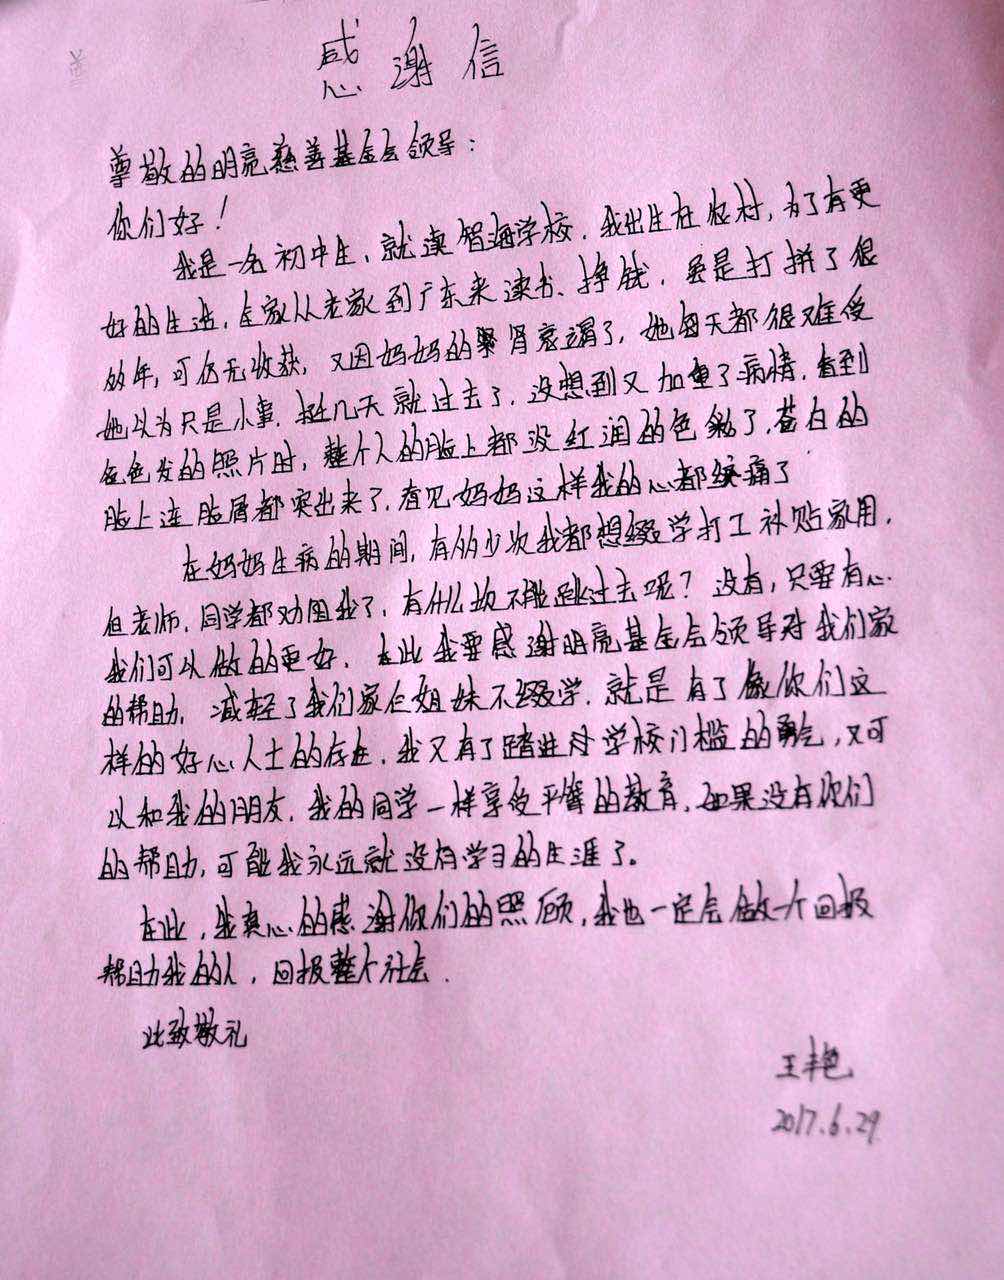 感谢信
尊敬的明亮慈善基金会领导：
你们好！
我是一名初中生、就读智海学校．我出生在农村，为了有更
好的生活，全家从老家到广东来读书、挣钱．虽是打拼了很
多年，可仍无收获，又因妈妈的肾衰竭了，她每天都很难受
她以为只是小事．挺几天就过去了．没想到又加重了病情．看到
色发的照片时，整个人的脸上都没红润的色彩了．苍白的
脸上连脸唇都突出来了．看见妈妈这样我的心都绞痛了
在妈妈生病的期间，有多少次我都想缀学打工补贴家用．
但老师，同学都劝阻我了，有什么坎不能跳过去呢？没有，只要有心．
我们可以做的更好．在此我要感谢明亮基金会领导对我们家
的帮助，减轻了我们家，姐妹不缀学．就是有了像你们这
样的好心人士的存在，我又有了踏进学校门槛的勇气，又可
以和我的朋友．我的同学一样享受平等的教育．如果没有你们
的帮助，可能我永远就没有学习的生涯了。
在此，我真心的感谢你们的照顾，我也一定会做一个回报
帮助我的人，回报整个社会．
此致敬礼
王丰艳
2017.6.29